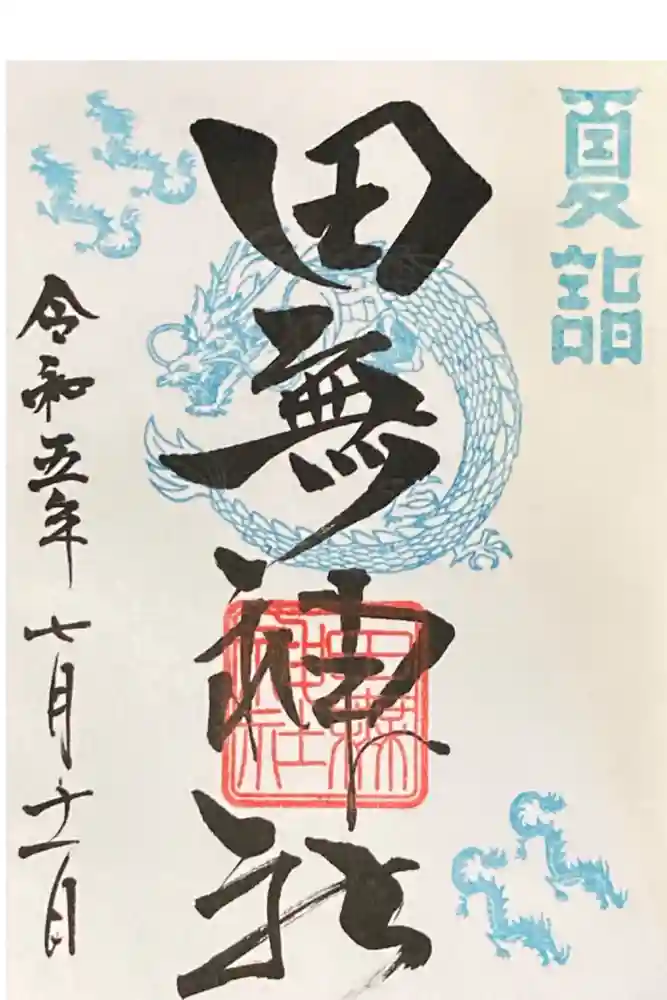 夏詣
田無神社
令和五年七月十一日
田無神社